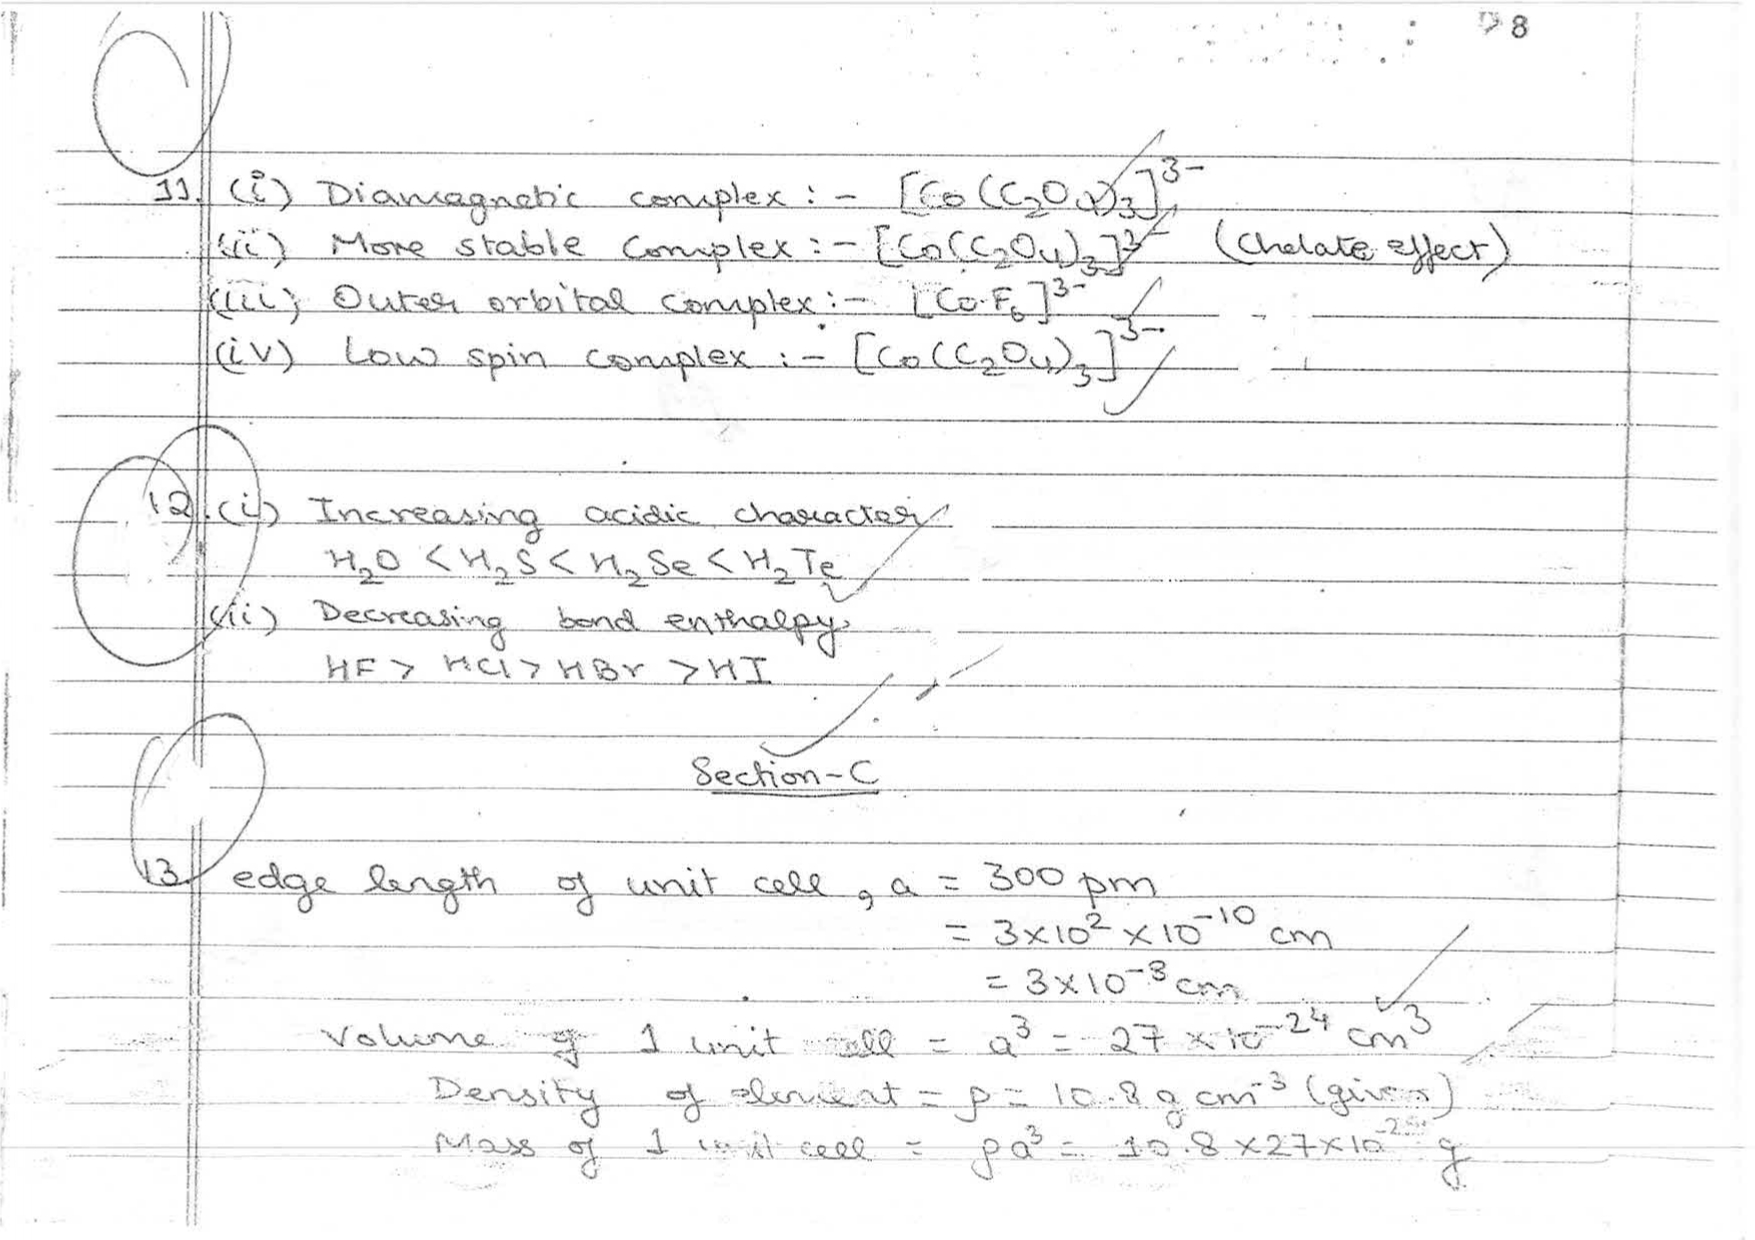 8
11. (i) Diamagnetic complex :- [Co(C₂O₄)₃]³⁻
(ii) More stable complex :- [Co(C₂O₄)₃]³⁻ (Chelate effect)
(iii) Outer orbital complex :- [CoF₆]³⁻
(iv) Low spin complex :- [Co(C₂O₄)₃]³⁻
12. (i) Increasing acidic character
H₂O < H₂S < H₂Se < H₂Te
(ii) Decreasing bond enthalpy
HF > HCl > HBr > HI
Section-C
13. edge length of unit cell, a = 300 pm
= 3×10² × 10⁻¹⁰ cm
= 3×10⁻⁸ cm
Volume of 1 unit cell = a³ = 27 × 10⁻²⁴ cm³
Density of element = ρ = 10.8 g cm⁻³ (given)
Mass of 1 unit cell = ρa³ = 10.8 × 27 × 10⁻²⁴ g